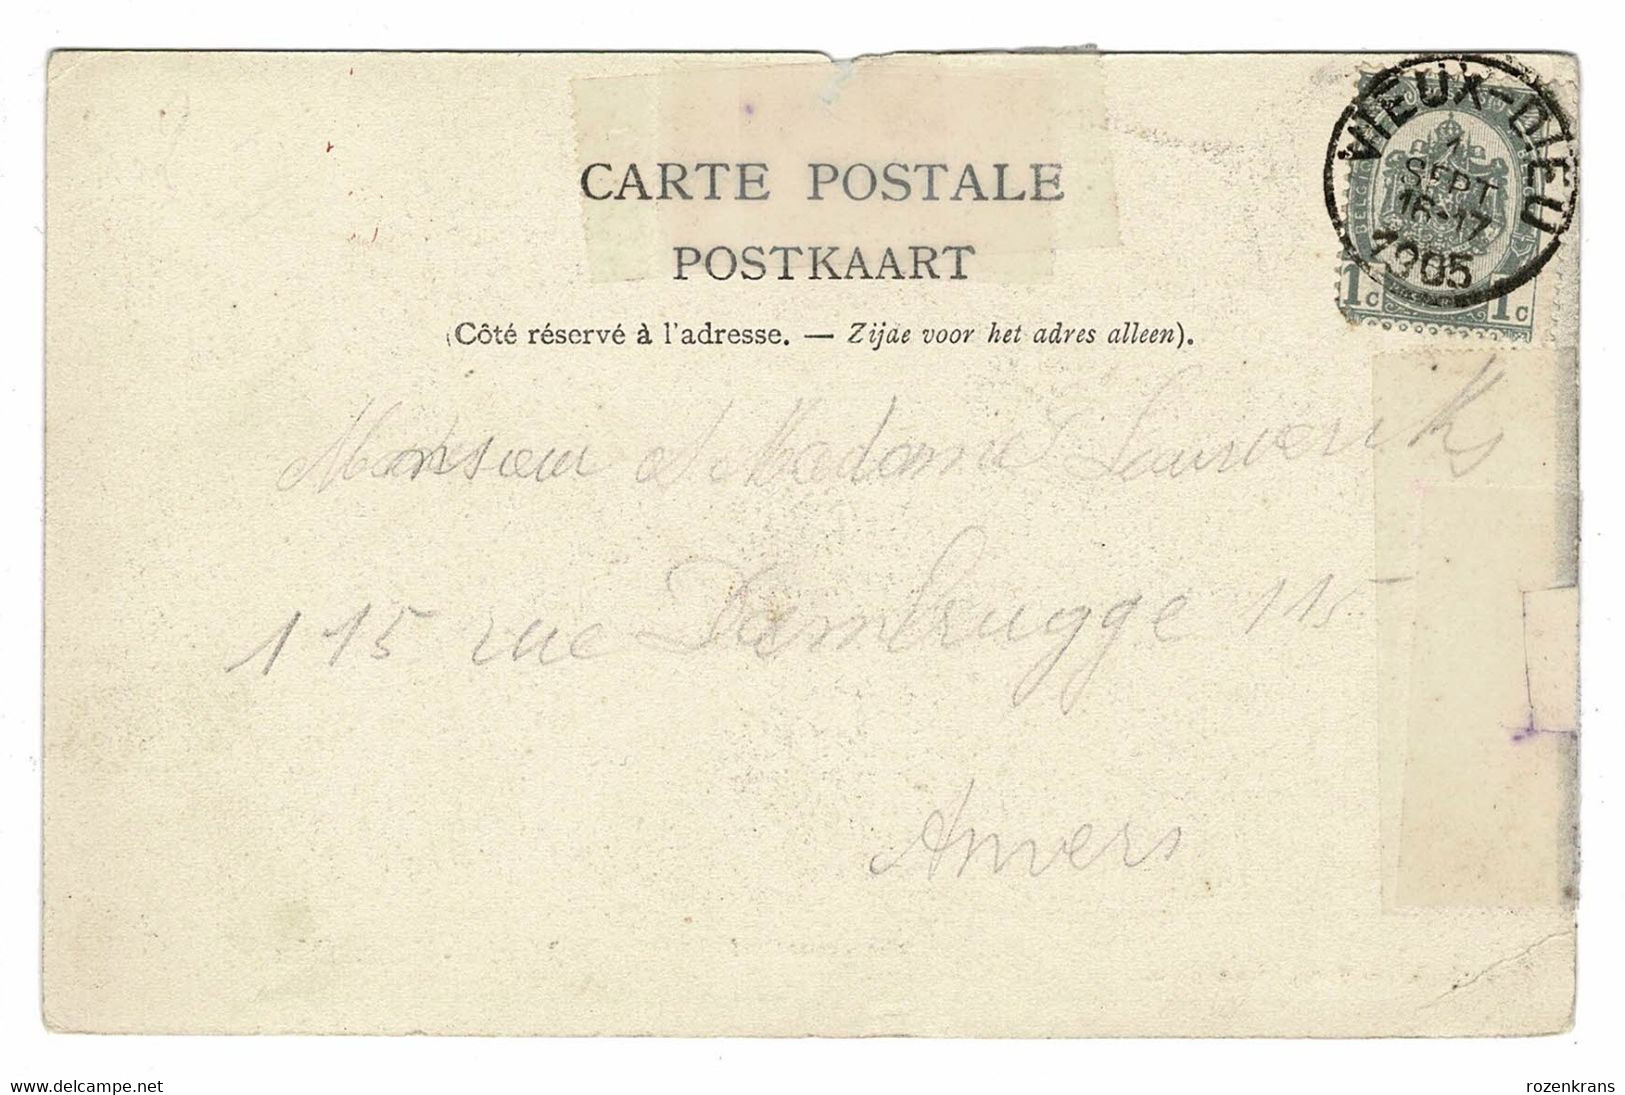 CARTE POSTALE
POSTKAART
(Côté réservé à l'adresse. — Zijde voor het adres alleen).
VIEUX-DIEU
1
SEPT
16-17
1905
BELGIQUE
1c 1c
Monsieur et Madame
115 rue Dambrugge 115
Anvers
www.delcampe.net
rozenkrans